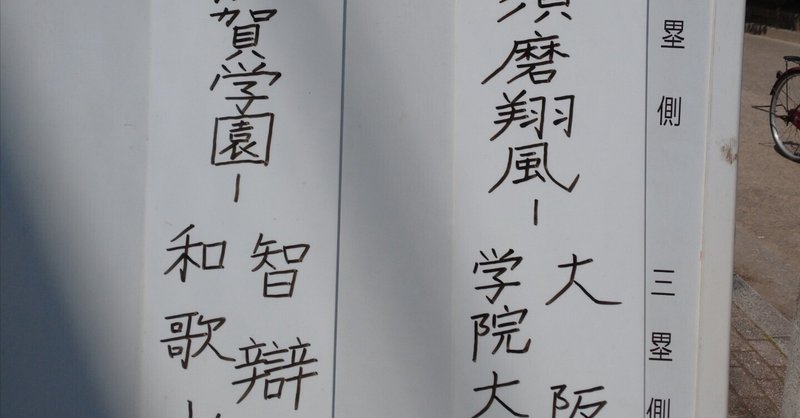 塁側
三塁側
須磨翔風ー
大阪
学院大
賀学園ー
智辯
和歌